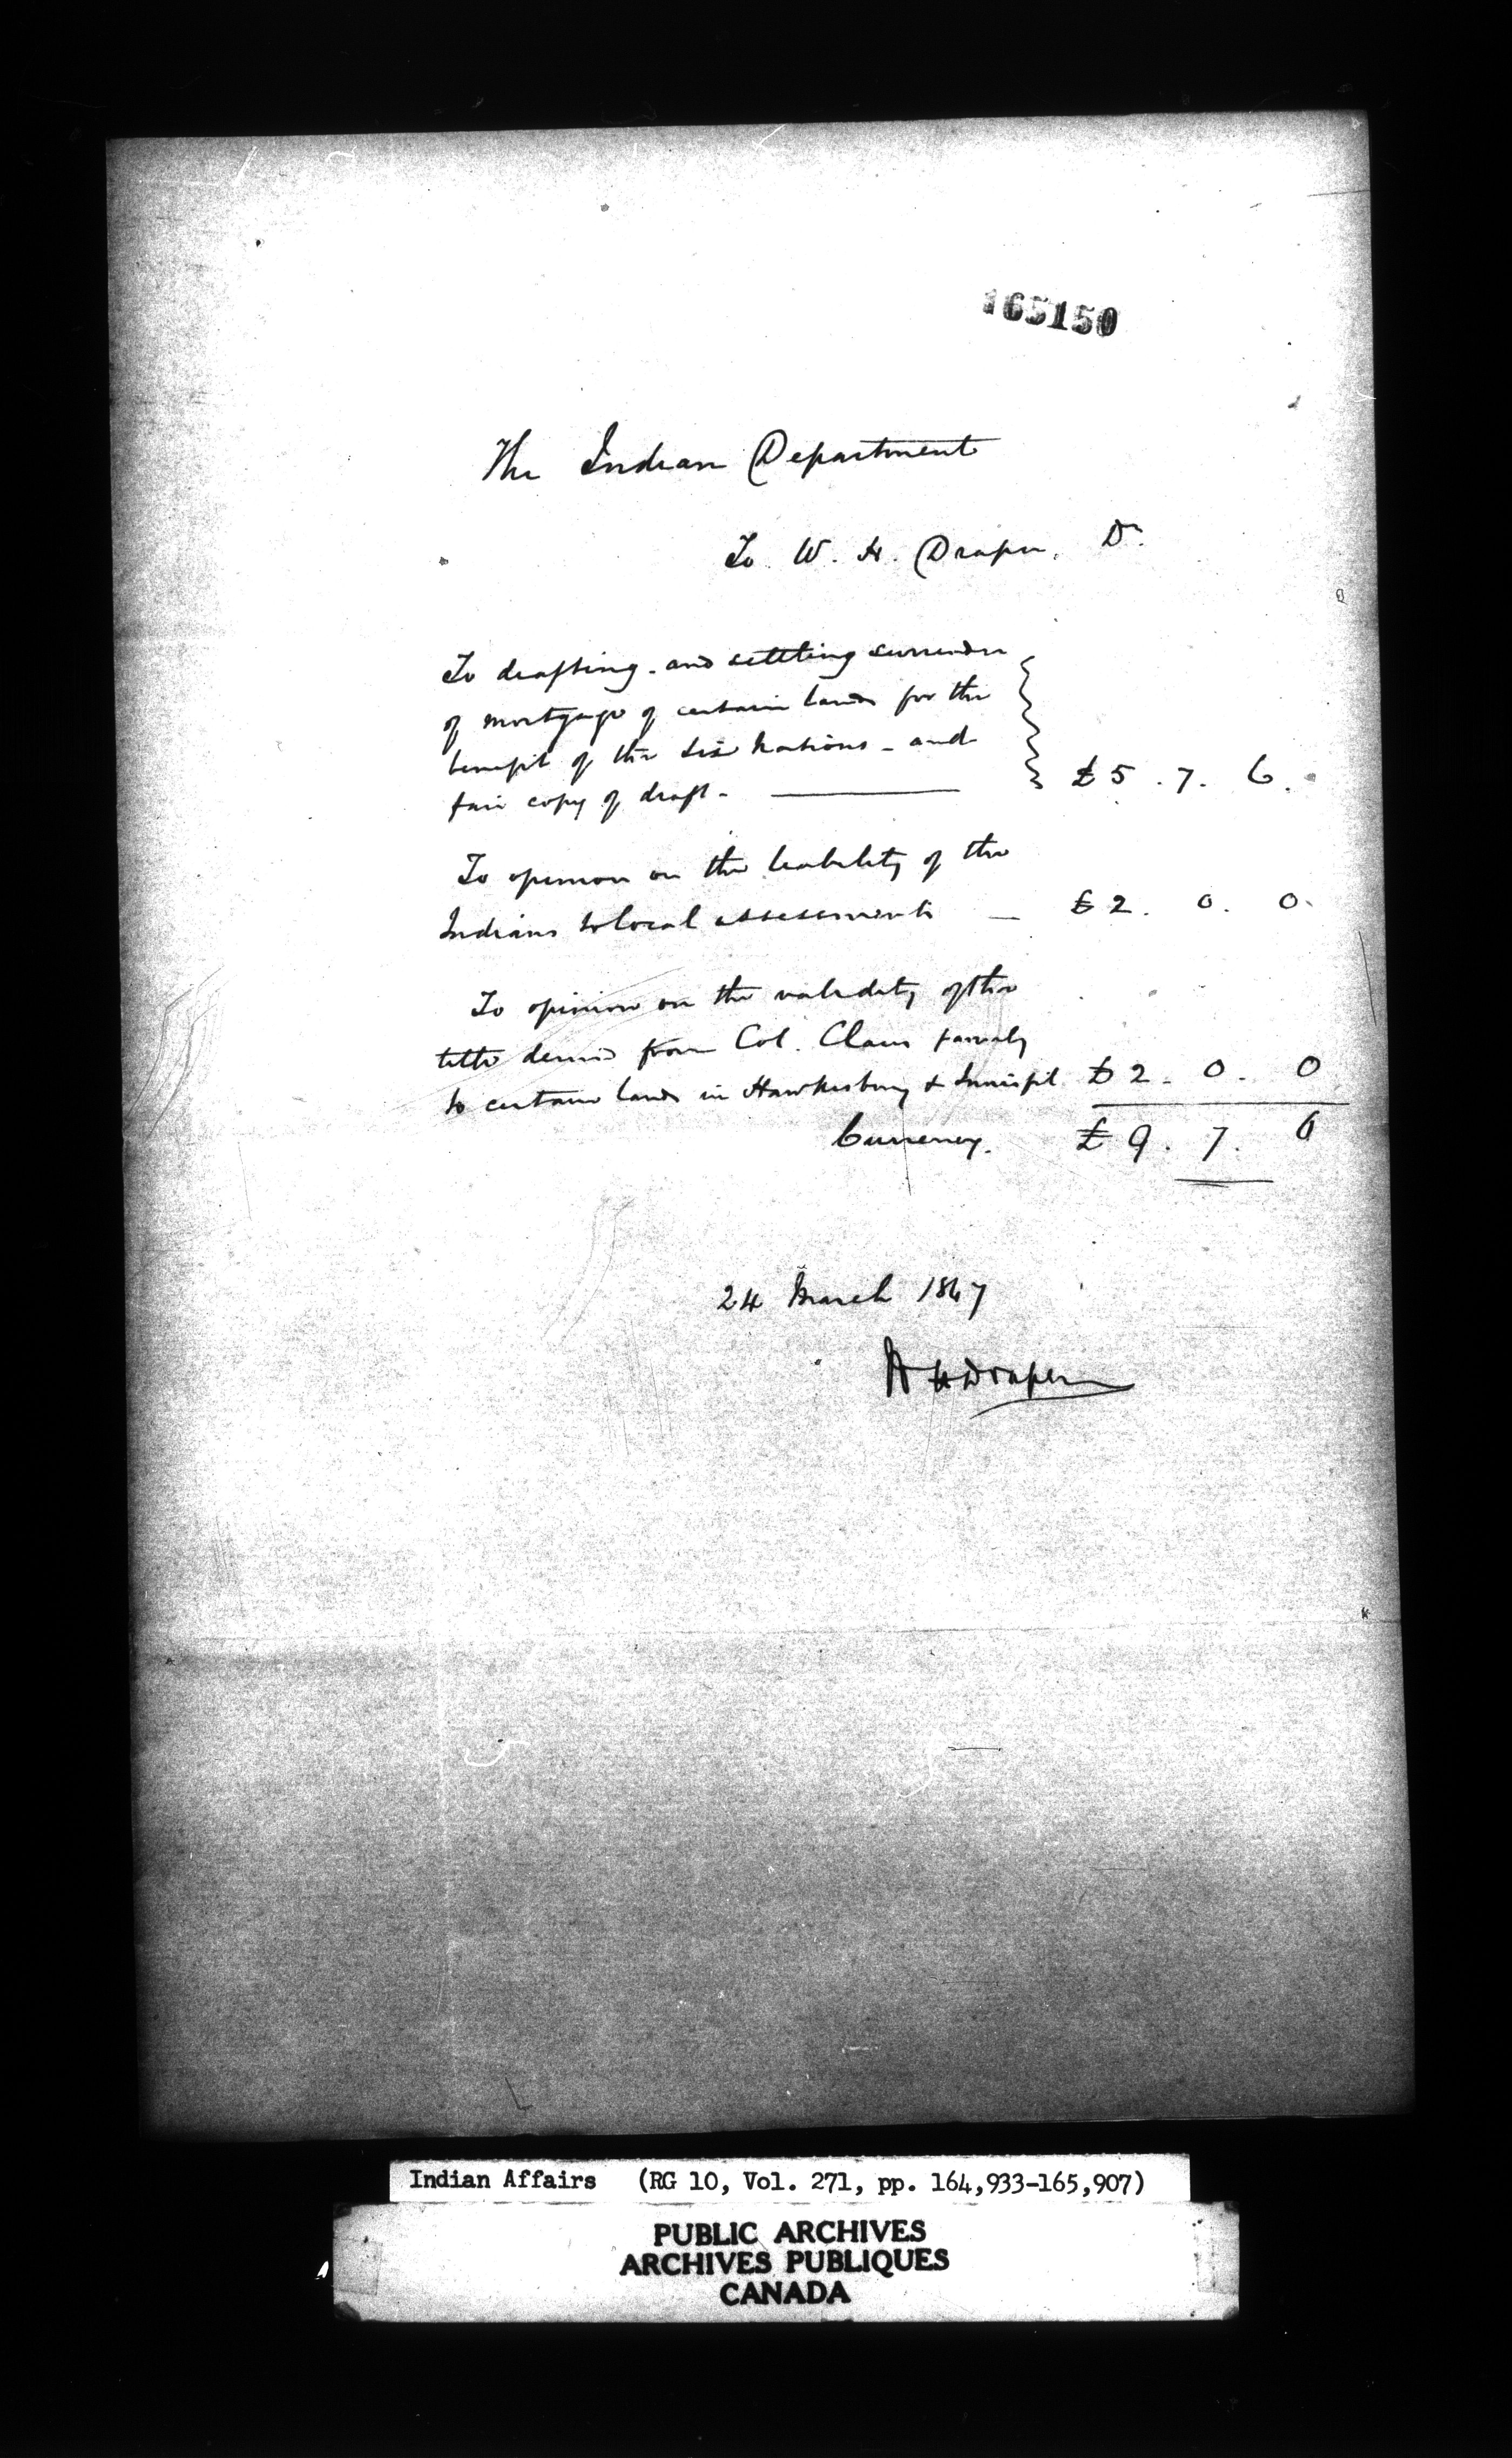 165150
The Indian Department
To W. H. Draper, Dr.
To drafting and settling surrender
of mortgage of certain lands for the
benefit of the Six Nations - and
fair copy of draft - £5. 7. 6.
To opinion on the liability of the
Indians to local assessments - £2. 0. 0.
To opinion on the validity of the
title derived from Col. Claus family
to certain lands in Hawkesbury & Innisfil £2. 0. 0
Currency. £9. 7. 6
24 March 1847
W H Draper
Indian Affairs (RG 10, Vol. 271, pp. 164,933-165,907)
PUBLIC ARCHIVES
ARCHIVES PUBLIQUES
CANADA